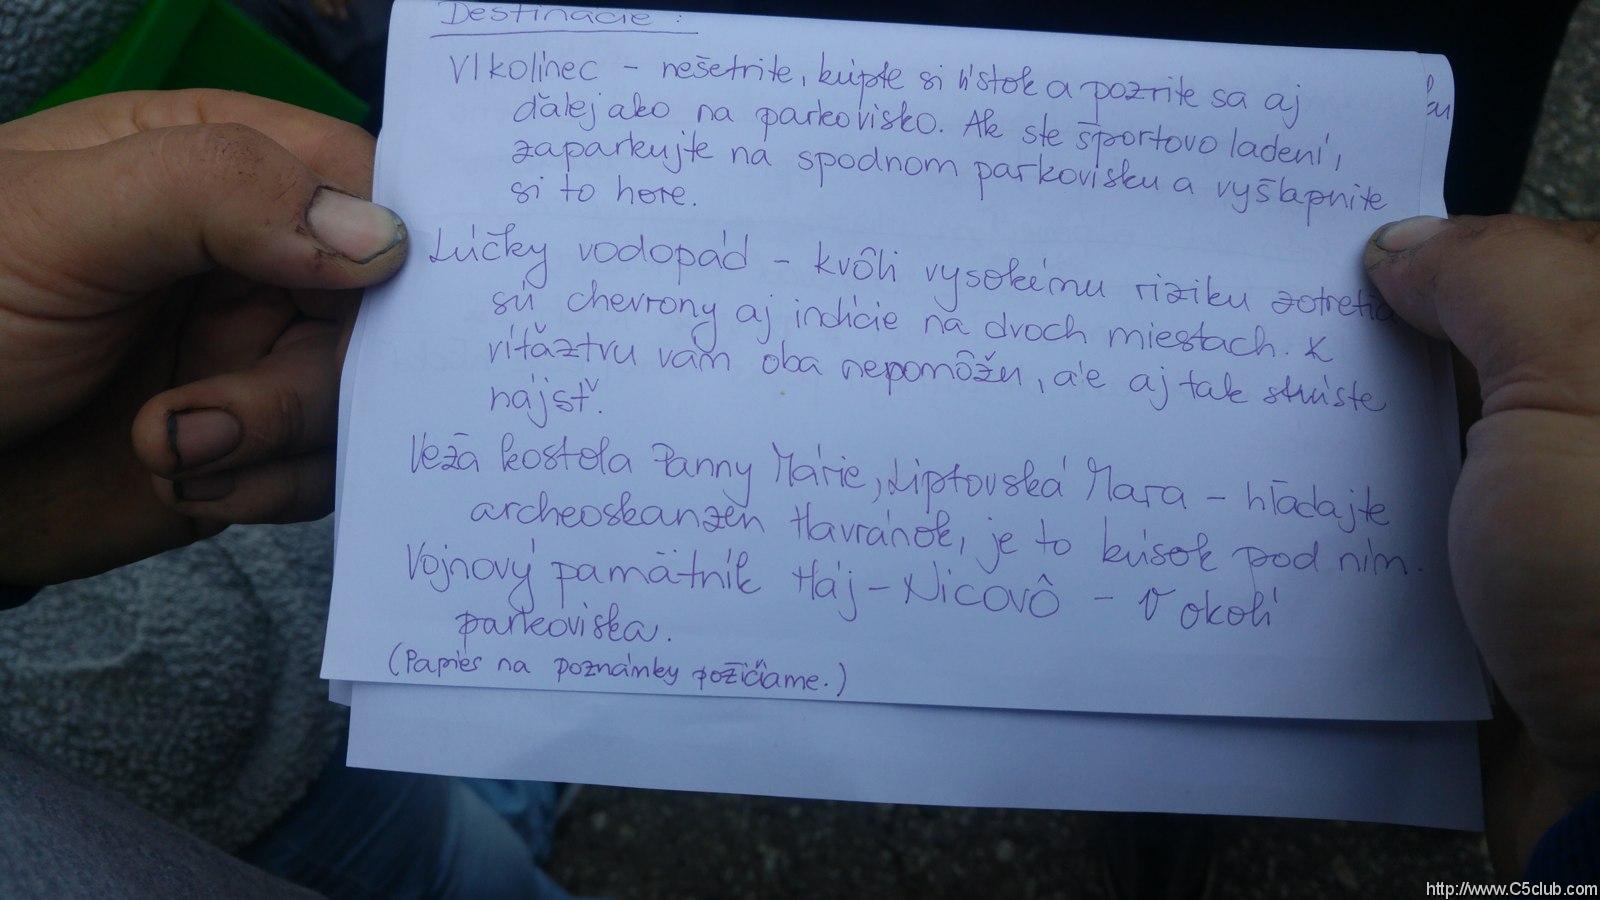 Destinácie :
Vlkolínec – nešetrite, kúpte si lístok a pozrite sa aj
ďalej ako na parkovisko. Ak ste športovo ladení,
zaparkujte na spodnom parkovisku a vyšlapnite
si to hore.
Lúčky vodopád – kvôli vysokému riziku zotretia
sú chevrony aj indície na dvoch miestach. K
víťaztvu vám oba nepomôžu, ale aj tak skúste
nájsť.
Veža kostola Panny Márie, Liptovská Mara – hľadajte
archeoskanzen Havránok, je to kúsok pod ním.
Vojnový pamätník Háj – Nicovô – v okolí
parkoviska.
(Papier na poznámky požičiame.)
http://www.C5club.com